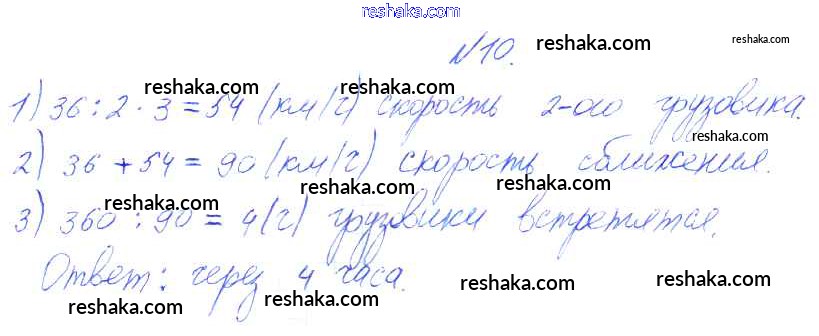 reshaka.com
№10. reshaka.com reshaka.com
reshaka.com
1) 36 : 2 · 3 = 54 (км/ч) скорость 2-ого грузовика.
reshaka.com reshaka.com
2) 36 + 54 = 90 (км/ч) скорость сближения.
reshaka.com reshaka.com
3) 360 : 90 = 4 (ч) грузовики встретятся.
reshaka.com reshaka.com
Ответ: через 4 часа.
reshaka.com reshaka.com reshaka.com reshaka.com